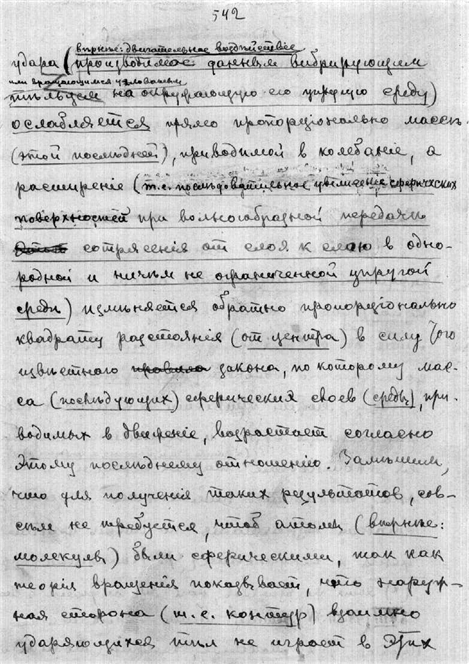 542
вѣрнѣе: двигательное воздѣйствіе
удара (производимое даннымъ вибрирующимъ
или вращающимся условомъ
тѣльцемъ на окружающую его упругую среду)
ослабляется прямо пропорціонально массѣ
(этой послѣдней), приводимой в колебаніе, а
расширеніе (т.е. послѣдовательное увеличеніе сферическихъ
поверхностей при волнообразной передачѣ
сотрясенія от слоя к слою в одно-
родной и ничѣм не ограниченной упругой
средѣ) измѣняется обратно пропорціонально
квадрату разстоянія (от центра) в силу того
извѣстнаго правила закона, по которому мас-
са (послѣдующих) сферических слоев (среды), при-
водимых в движеніе, возрастает согласно
этому послѣднему отношенію. Замѣтим,
что для полученія таких результатов, сов-
сѣм не требуется, чтоб атомы (вѣрнѣе:
молекулы) были сферическими, так как
теорія вращенія показывает, что наруж-
ная сторона (т.е. контур) взаимно
ударяющихся тѣл не играет в этих